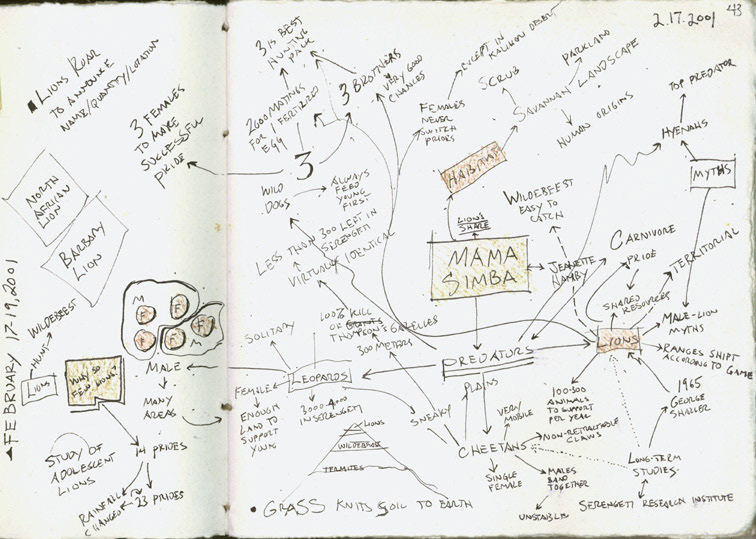 43
2.17.2001
LIONS ROAR
TO ANNOUNCE
NAME/QUANTITY/LOCATION
3 FEMALES
TO MAKE
SUCCESSFUL
PRIDE
NORTH
AFRICAN
LION
BARBARY
LION
FEBRUARY 17-19, 2001
WILDEBEEST
HUNT
LIONS
WHY SO
FEW MALES?
M
F
F
M
F
F
MALE
MANY
AREAS
14 PRIDES
23 PRIDES
RAINFALL
CHANGED
STUDY OF
ADOLESCENT
LIONS
3 IS BEST
HUNTING
PACK
3 BROTHERS
VERY GOOD
CHANCES
2600 MATINGS
FOR 1 FERTILIZED
EGG
3
WILD
DOGS
ALWAYS
FEED
YOUNG
FIRST
LESS THAN 300 LEFT IN
SERENGETI
VIRTUALLY IDENTICAL
EXCEPT IN
KALAHARI DESERT
FEMALES
NEVER
SWITCH
PRIDES
SCRUB
PARKLAND
SAVANNAH LANDSCAPE
HUMAN ORIGINS
HABITAT
LION'S
SHARE
MAMA
SIMBA
WILDEBEEST
EASY TO
CATCH
JEANETTE
HANBY
TOP PREDATOR
HYENAHS
MYTHS
CARNIVORE
PRIDE
SHARED
RESOURCES
TERRITORIAL
LIONS
MALE-LION
MYTHS
RANGES SHIFT
ACCORDING TO GAME
1965
GEORGE
SHALLER
LONG-TERM
STUDIES
SERENGETI RESEARCH INSTITUTE
100-300
ANIMALS
TO SUPPORT
PER YEAR
PREDATORS
PLAINS
CHEETAHS
VERY
MOBILE
NON-RETRACTABLE
CLAWS
MALES
BAND
TOGETHER
UNSTABLE
SINGLE
FEMALE
SNEAKY
300 METERS
100% KILL
OF GRANTS
THOMPSON'S GAZELLES
SOLITARY
LEOPARDS
FEMALE
ENOUGH
LAND TO
SUPPORT
YOUNG
3000-4000
IN SERENGETI
LIONS
WILDEBEEST
TERMITES
GRASS KNITS SOIL TO EARTH